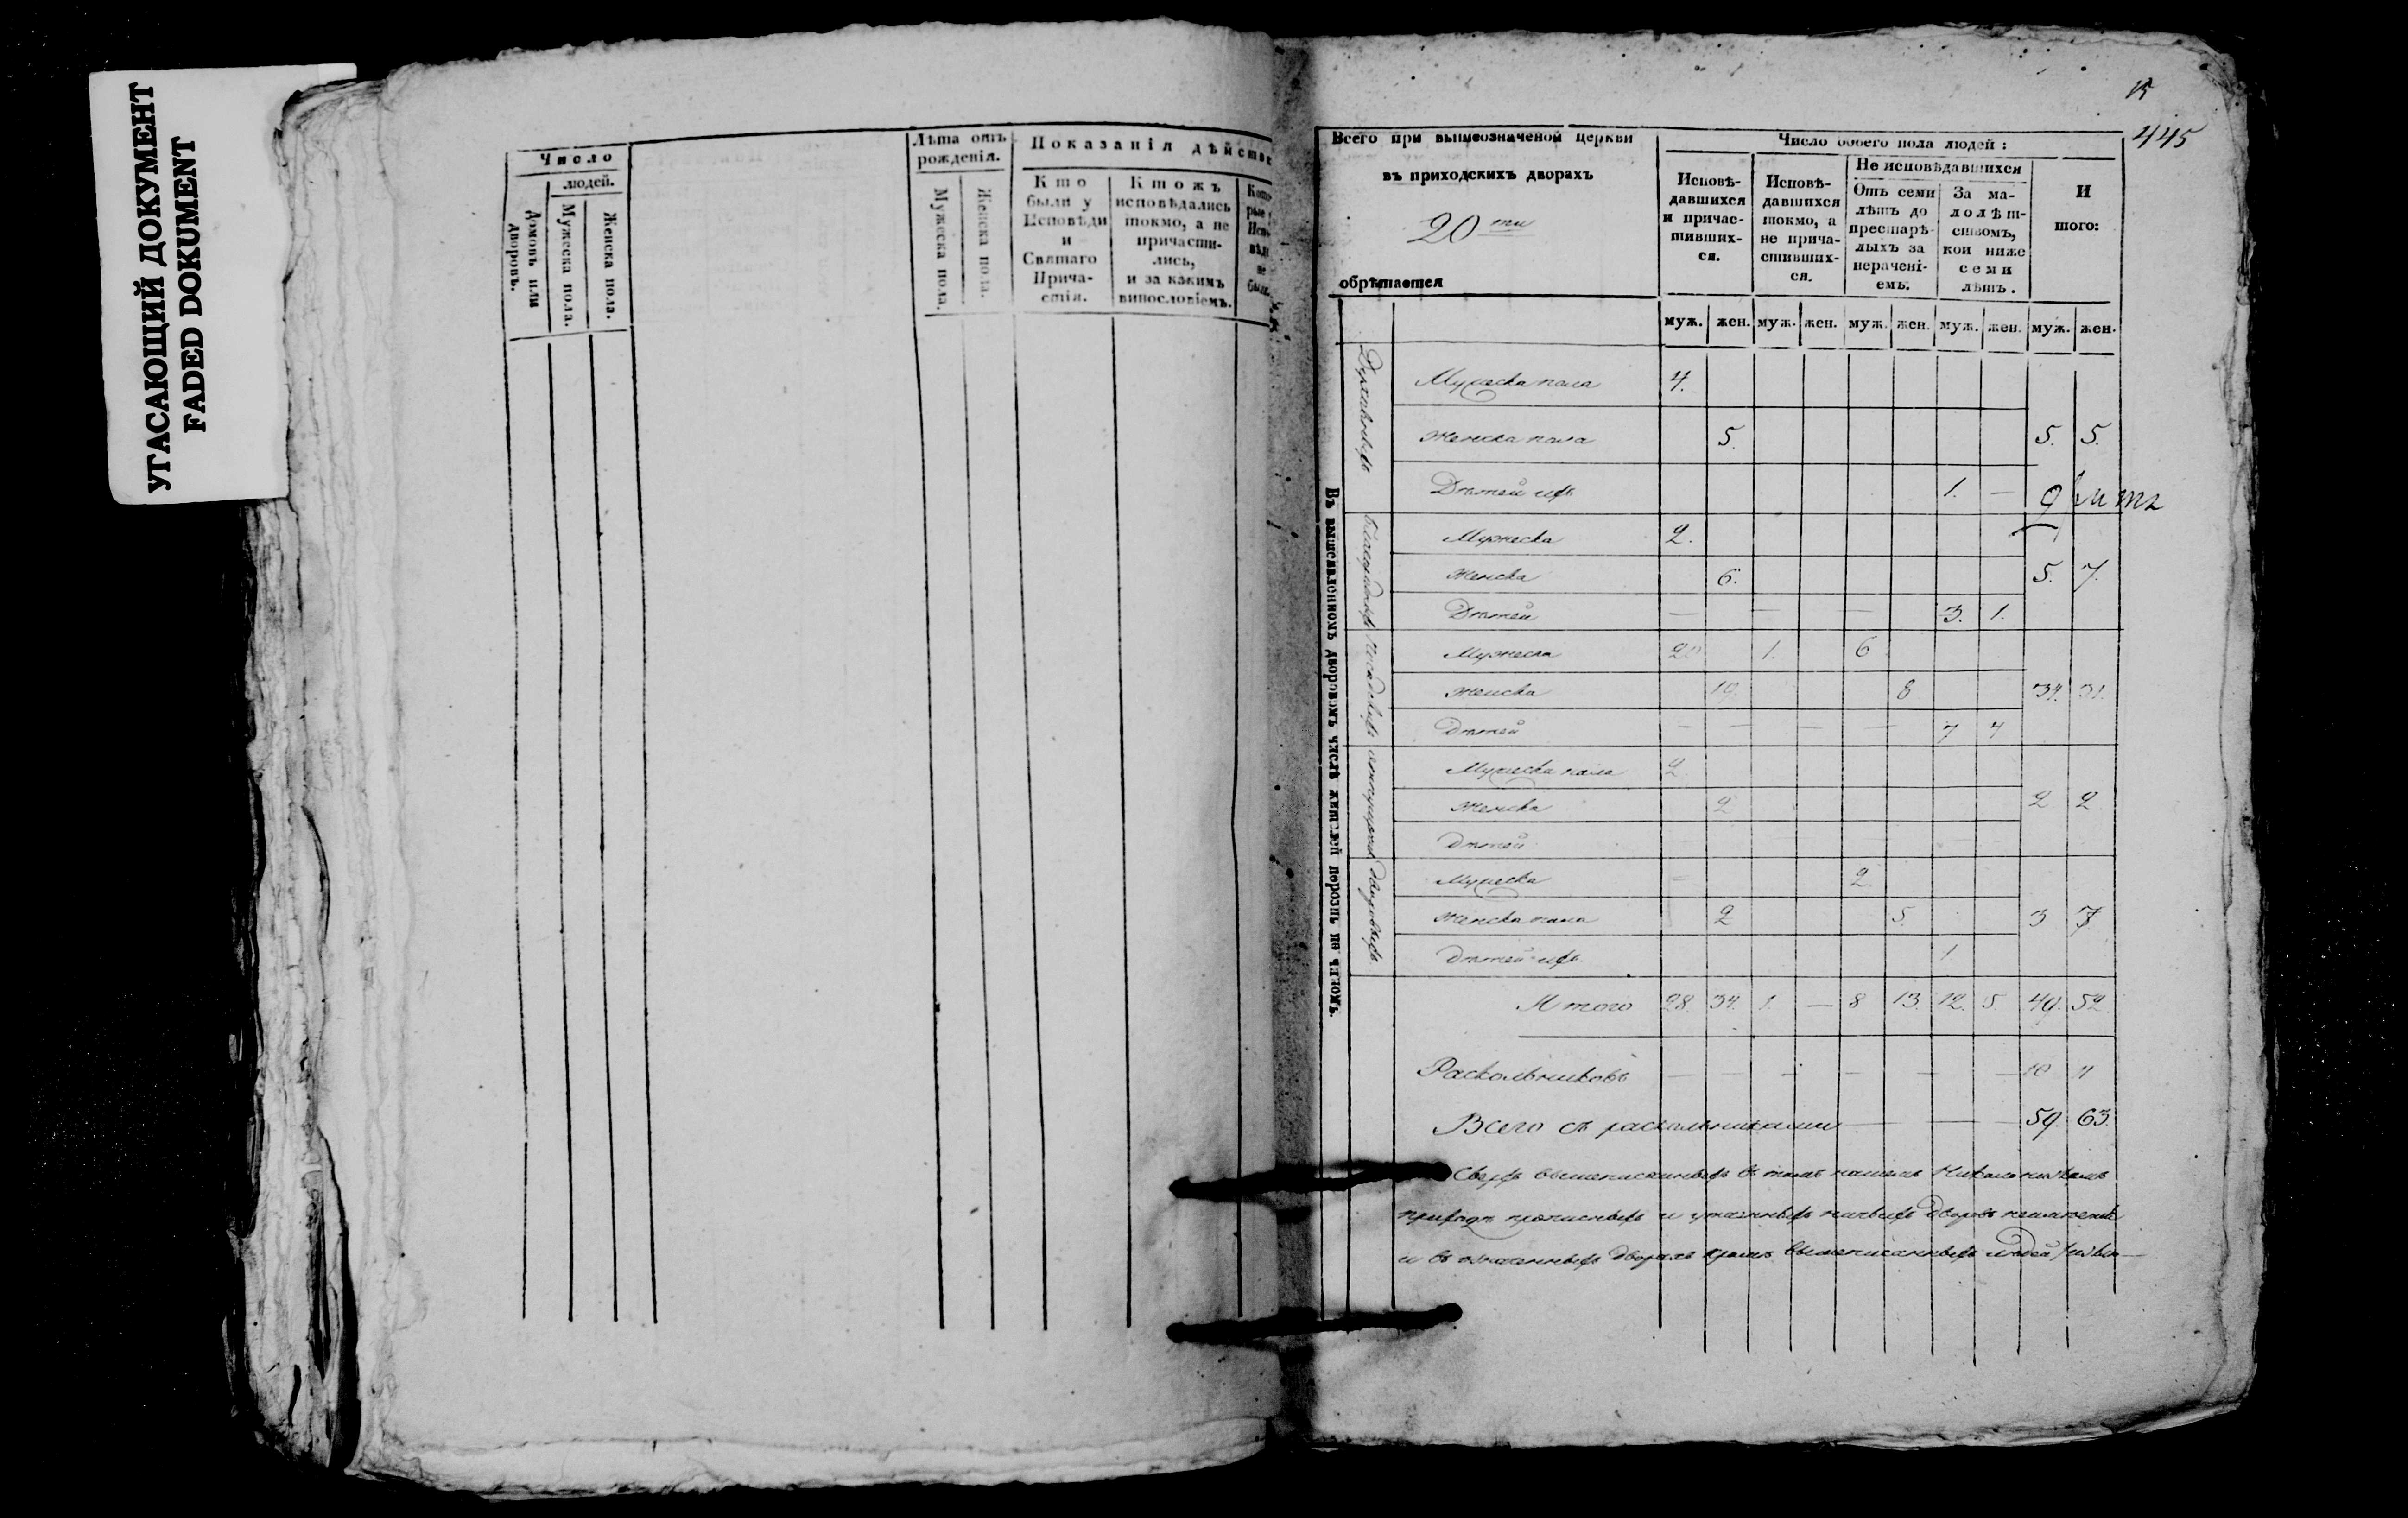 УГАСАЮЩИЙ ДОКУМЕНТ
FADED DOKUMENT
Число
людей.
Домовъ или дворовъ.
Мужеска пола.
Женска пола.
Лѣта отъ рожденія.
Мужеска пола.
Женска пола.
Показанія дѣйств
Кто были у Исповѣди и Святаго Причастія.
Ктожъ исповѣдались токмо, а не причастились, и за какимъ винословіемъ.
15
445
Всего при вышеозначеной церкви
въ приходскихъ дворахъ
20 ти
обрѣтается
Число обоего пола людей:
Исповѣдавшихся и причастившихся.
Исповѣдавшихся токмо, а не причастившихся.
Не исповѣдавшихся
Отъ семи лѣтъ до престарѣлыхъ за нераченіемъ.
За малолѣтствомъ, кои ниже семи лѣтъ.
Итого:
муж. жен. муж. жен. муж. жен. муж. жен. муж. жен.
Въ вышеявленномъ дворовомъ числѣ жителей порознь по чиномъ.
Духовныхъ
Мужеска пола 4.
Женска пола 5. 5. 5.
Дѣтей ихъ 1. —
Мужеска 2.
Женска 6. 5. 7.
Дѣтей — — — 3. 1.
Мужеска 20 1. 6
Женска 19. 8 34. 31.
Дѣтей — — — — 7 4
Мужеска пола 2
Женска 2 2 2
Дѣтей
Мужеска — 2
дворовыхъ
Женска пола 2 5. 3 7
Дѣтей ихъ 1
Итого 28. 34. 1. — 8 13. 12. 5. 49. 52.
Раскольниковъ — — — — — — 10 11
Всего съ раскольниками — — — 59. 63.
Сверхъ вышеписанныхъ въ томъ нашемъ
приходѣ прописныхъ и утаенныхъ дворовъ
и въ означенныхъ дворахъ кромѣ вышеписанныхъ людей